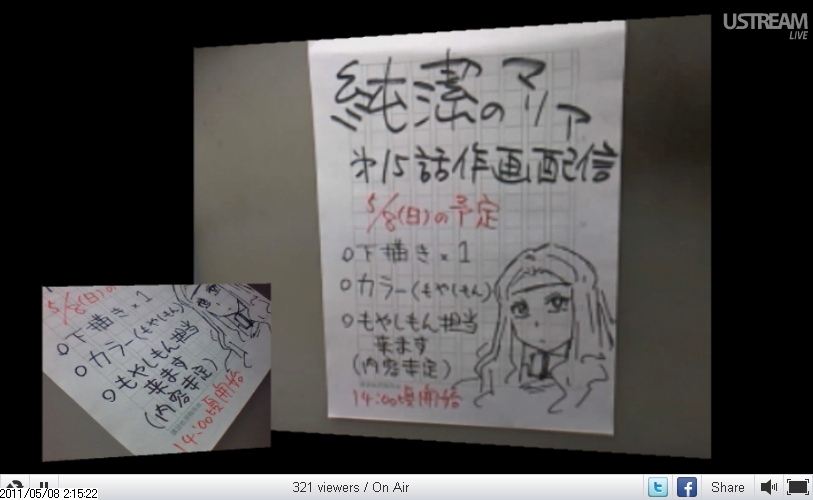 USTREAM
LIVE
純潔のマリア
第15話作画配信
5/8(日)の予定
○下描き×1
○カラー(もやしもん)
○もやしもん担当
来ます
(内容未定)
14:00頃開始
5/8(日)の
○下描き×1
○カラー(もやしもん
○もやしもん担当
来ます
(内容未定)
14:00頃開始
321 viewers / On Air
Share
2011/05/08 2:15:22